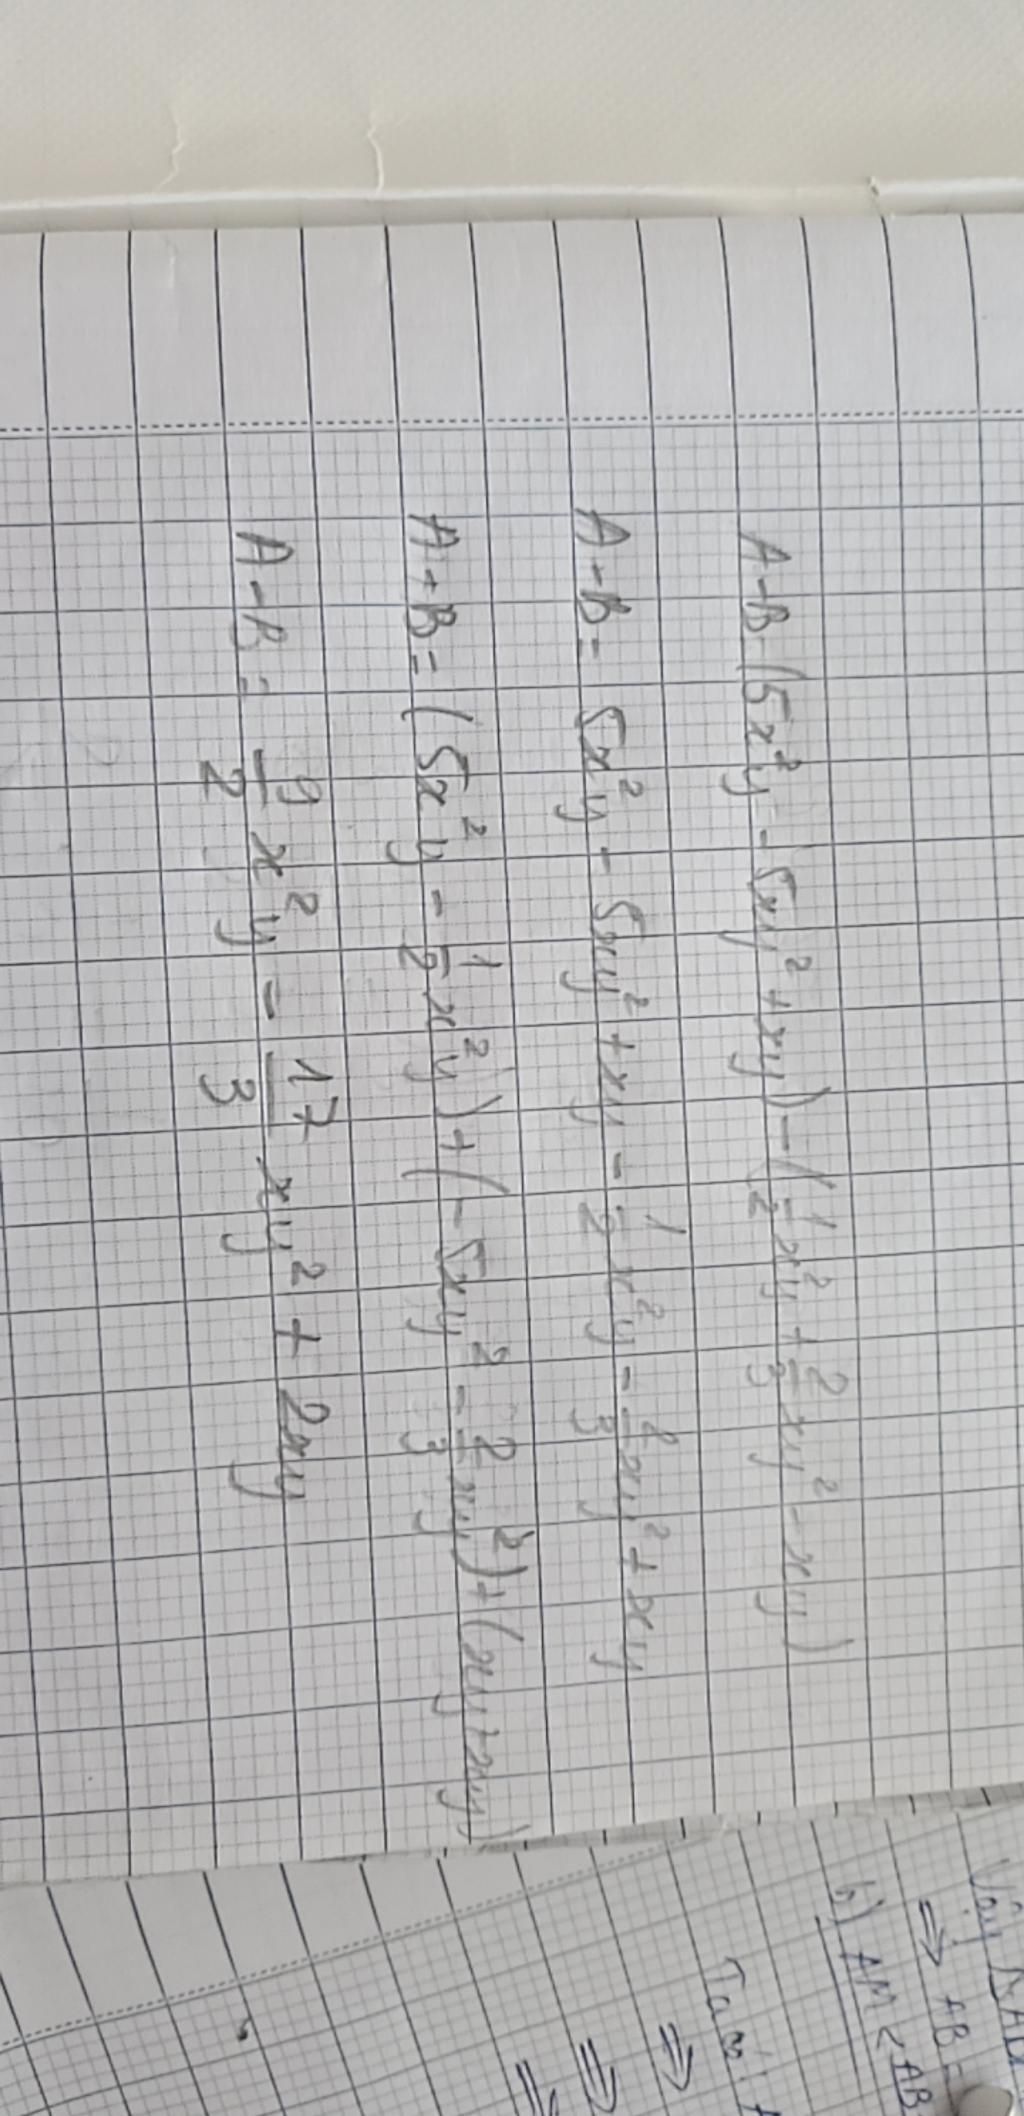 A-B=(5x²y-5xy²+xy)-(1/2x²y+2/3xy²-xy)
A-B=5x²y-5xy²+xy-1/2x²y-2/3xy²+xy
A+B=(5x²y-1/2x²y)+(-5xy²-2/3xy²)+(xy+xy)
A-B=9/2x²y-17/3xy²+2xy
⇒ AB =
b) AM < AB
Ta có:
⇒
⇒
⇒